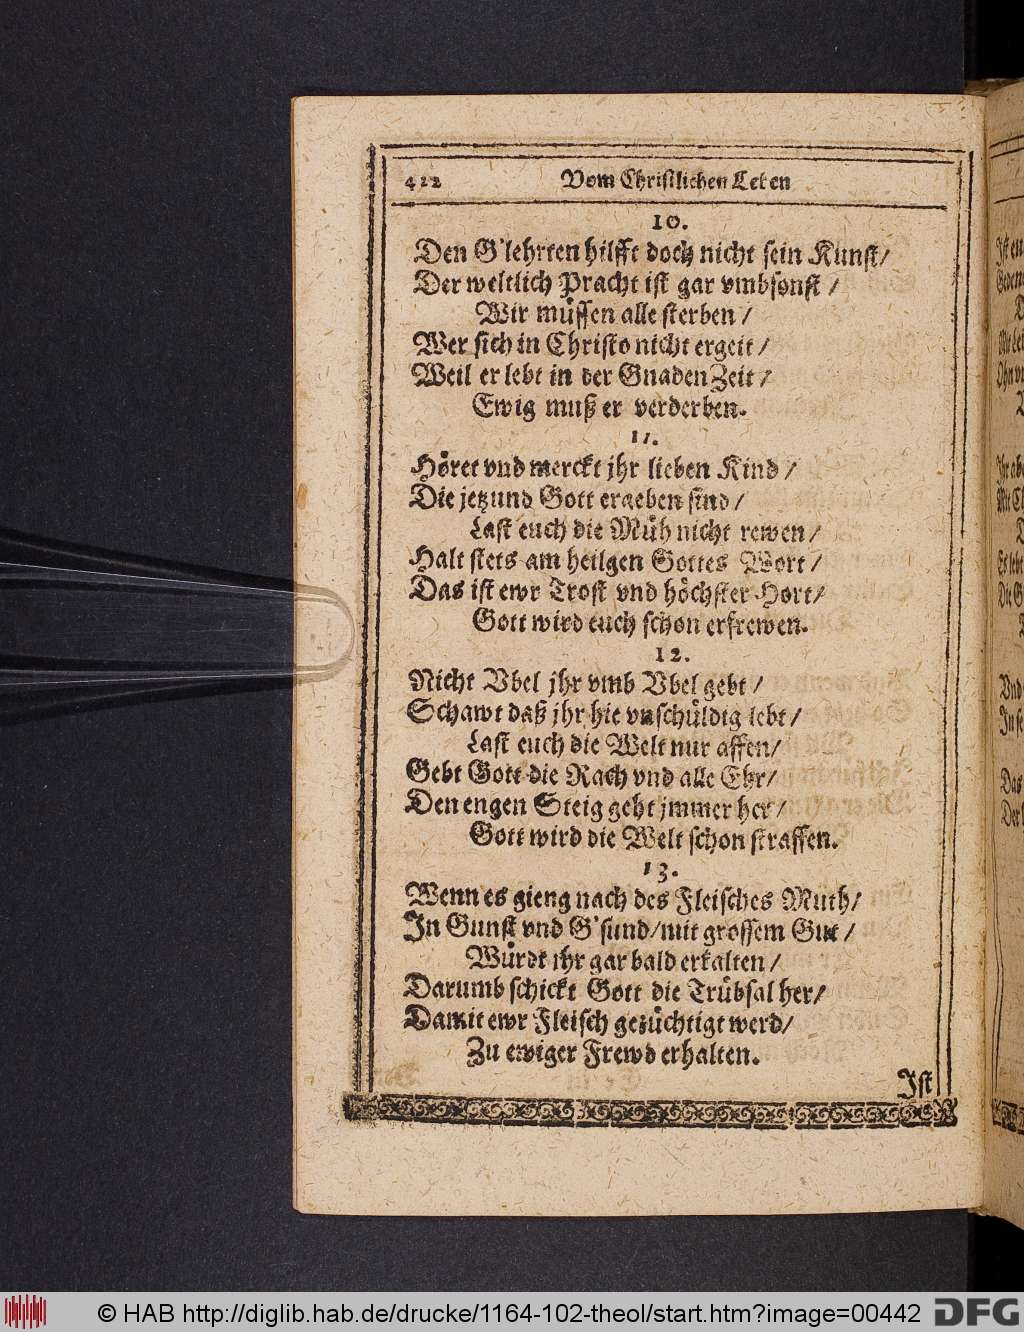 422 Vom Christlichen Leben
10.
Den G'lehrten hilfft doch nicht sein Kunst /
Der weltlich Pracht ist gar vmbsonst /
Wir müssen alle sterben /
Wer sich in Christo nicht ergeit /
Weil er lebt in der Gnaden Zeit /
Ewig muß er verderben.
11.
Höret vnd merckt jhr lieben Kind /
Die jetzund Gott ergeben sind /
Last euch die Müh nicht rewen /
Halt stets am heilgen Gottes Wort /
Das ist ewr Trost vnd höchster Hort /
Gott wird euch schon erfrewen.
12.
Nicht Vbel jhr vmb Vbel gebt /
Schawt daß jhr hie vnschüldig lebt /
Last euch die Welt nur affen /
Gebt Gott die Rach vnd alle Ehr /
Den engen Steig geht jmmer her /
Gott wird die Welt schon straffen.
13.
Wenn es gieng nach des Fleisches Muth /
In Gunst vnd G'sund / mit grossem Gut /
Würdt ihr gar bald erkalten /
Darumb schickt Gott die Trübsal her /
Damit ewr Fleisch gezüchtigt werd /
Zu ewiger Frewd erhalten.
Ist
© HAB http://diglib.hab.de/drucke/1164-102-theol/start.htm?image=00442 DFG